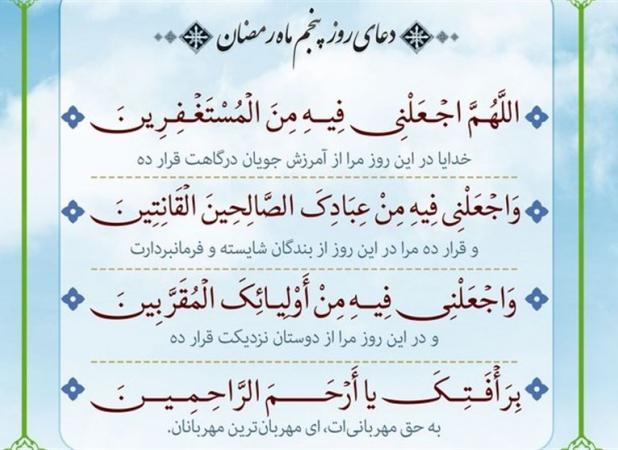 دعای روز پنجم ماه رمضان
اللَّهُمَّ اجْعَلْنِی فِیهِ مِنَ الْمُسْتَغْفِرِینَ
خدایا در این روز مرا از آمرزش جویان درگاهت قرار ده
وَاجْعَلْنِی فِیهِ مِنْ عِبَادِکَ الصَّالِحِینَ الْقَانِتِینَ
و قرار ده مرا در این روز از بندگان شایسته و فرمانبردارت
وَاجْعَلْنِی فِیهِ مِنْ أَوْلِیائِکَ الْمُقَرَّبِینَ
و در این روز مرا از دوستان نزدیکت قرار ده
بِرَأْفَتِکَ یا أَرْحَمَ الرَّاحِمِینَ
به حق مهربانی‌ات، ای مهربان‌ترین مهربانان.